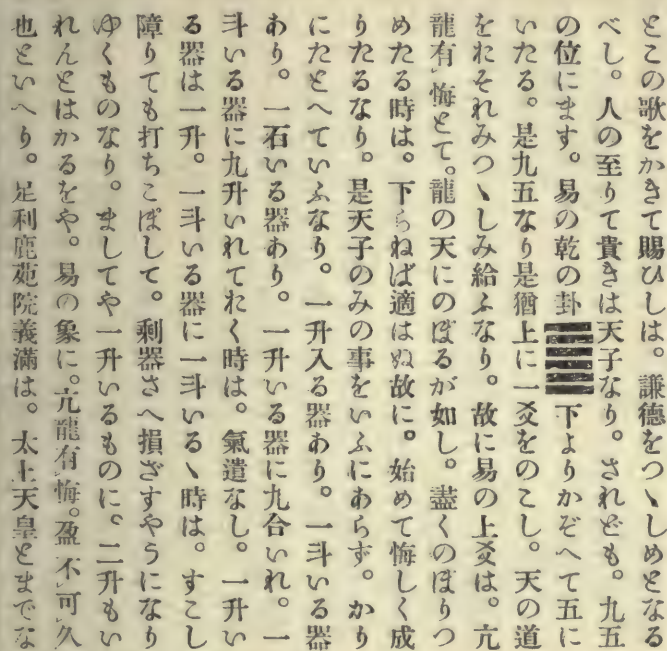 とこの歌をかきて賜ひしは。謙徳をつゝしめとなる
べし。人の至りて貴きは天子なり。されども。九五
の位にます。易の乾の卦䷀下よりかぞへて五に
いたる。是九五なり是猶上に一爻をのこし。天の道
をおそれみつゝしみ給ふなり。故に易の上爻は。亢
龍有㆑悔とて。龍の天にのぼるが如し。盡くのぼりつ
めたる時は。下らねば適はぬ故に。始めて悔しく成
りたるなり。是天子のみの事をいふにあらず。かり
にたとへていふなり。一升入る器あり。一斗いる器
あり。一石いる器あり。一升いる器に九合いれ。一
斗いる器に九升いれておく時は。氣遣なし。一升い
る器は一升。一斗いる器に一斗いるゝ時は。すこし
障りても打ちこぼして。剩器さへ損ざすやうになり
ゆくものなり。ましてや一升いるものに。二升もい
れんとはかるをや。易の象に。亢龍有㆑悔。盈不㆑可㆑久
也といへり。足利鹿苑院義滿は。太上天皇とまでな